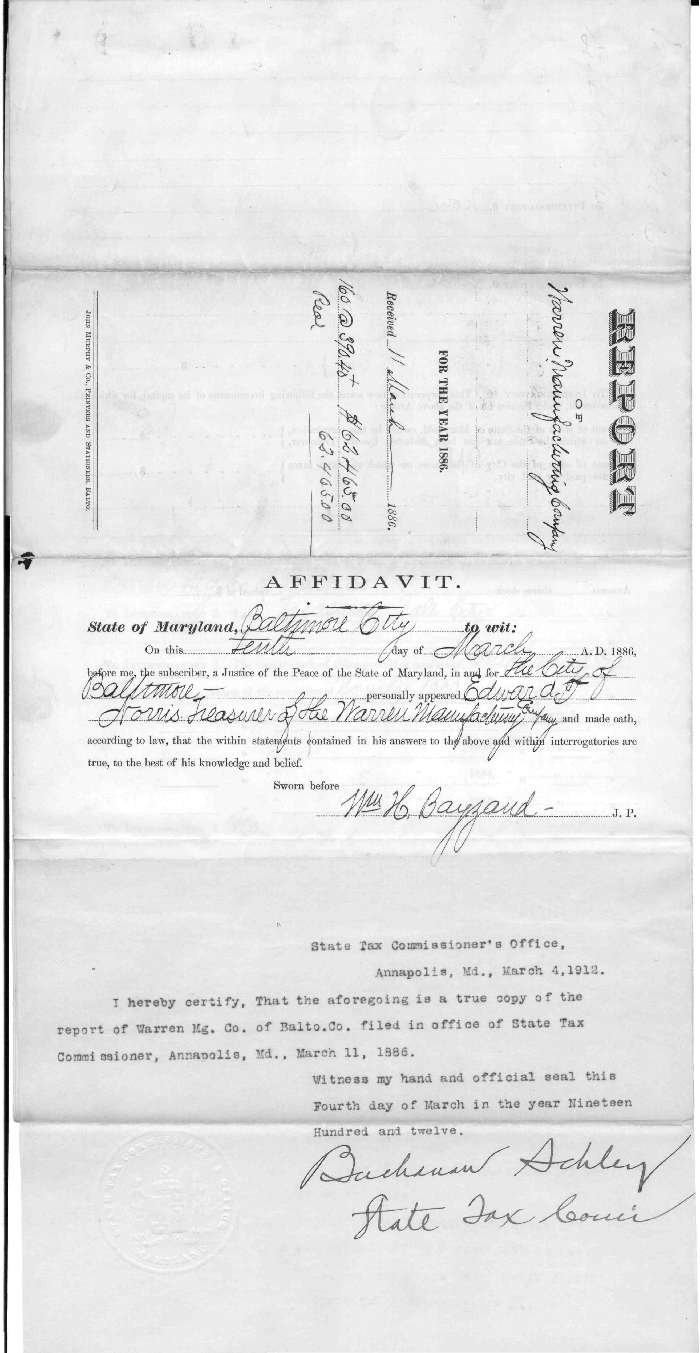 REPORT
OF
Warren Manufacturing Company
FOR THE YEAR 1886.
Received 11 March 1886.
160 @ 390.40+ $62,465.00
Real 62,465.00
JOHN MURPHY & CO., PRINTERS AND STATIONERS, BALTO.
AFFIDAVIT.
State of Maryland, Baltimore City to wit:
On this tenth day of March A. D. 1886,
before me, the subscriber, a Justice of the Peace of the State of Maryland, in and for the City of
Baltimore- personally appeared Edward
Norris Treasurer of the Warren Manufacturing Company and made oath,
according to law, that the within statements contained in his answers to the above and within interrogatories are
true, to the best of his knowledge and belief.
Sworn before
Wm H. Bayzand- J. P.
State Tax Commissioner's Office,
Annapolis, Md., March 4,1912.
I hereby certify, That the aforegoing is a true copy of the
report of Warren Mg. Co. of Balto.Co. filed in office of State Tax
Commissioner, Annapolis, Md., March 11, 1886.
Witness my hand and official seal this
Fourth day of March in the year Nineteen
Hundred and twelve.
Buchanan Schley
State Tax Comr